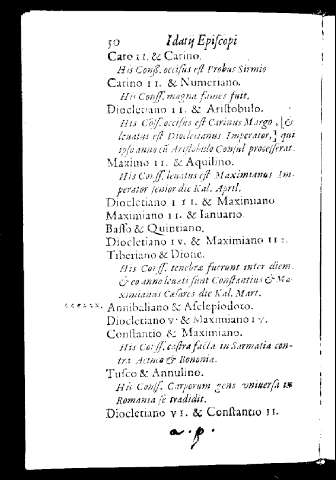 50 Idatij Episcopi
Caro II. & Carino.
His Conss. occisus est Probus Sirmio
Carino II. & Numeriano.
His Conss. magna fames fuit.
Diocletiano II. & Aristobulo.
His Coss. occisus est Carinus Margo, [&
levatus est Diocletianus Imperator,] qui
ipso anno cũ Aristobulo Consul processerat.
Maximo II. & Aquilino.
His Conss. levatus est Maximianus Im-
perator senior die Kal. April.
Diocletiano III. & Maximiano
Maximiano II. & Ianuario.
Basso & Quintiano.
Diocletiano IV. & Maximiano III.
Tiberiano & Dione.
His Conss. tenebræ fuerunt inter diem.
& eo anno levati sunt Constantius & Ma-
ximianus Cæsares die Kal. Mart.
Annibaliano & Asclepiodoto.
Diocletiano V. & Maximiano IV.
Constantio & Maximiano.
His Conss. castra facta in Sarmatia con-
tra Acinco & Bononia.
Tusco & Annulino.
His Conss. Carporum gens universa in
Romania se tradidit.
Diocletiano VI. & Constantio II.
a. p.